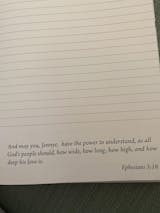 And may you, Jennye, have the power to understand, as all
God's people should, how wide, how long, how high, and how
deep his love is.
Ephesians 3:18